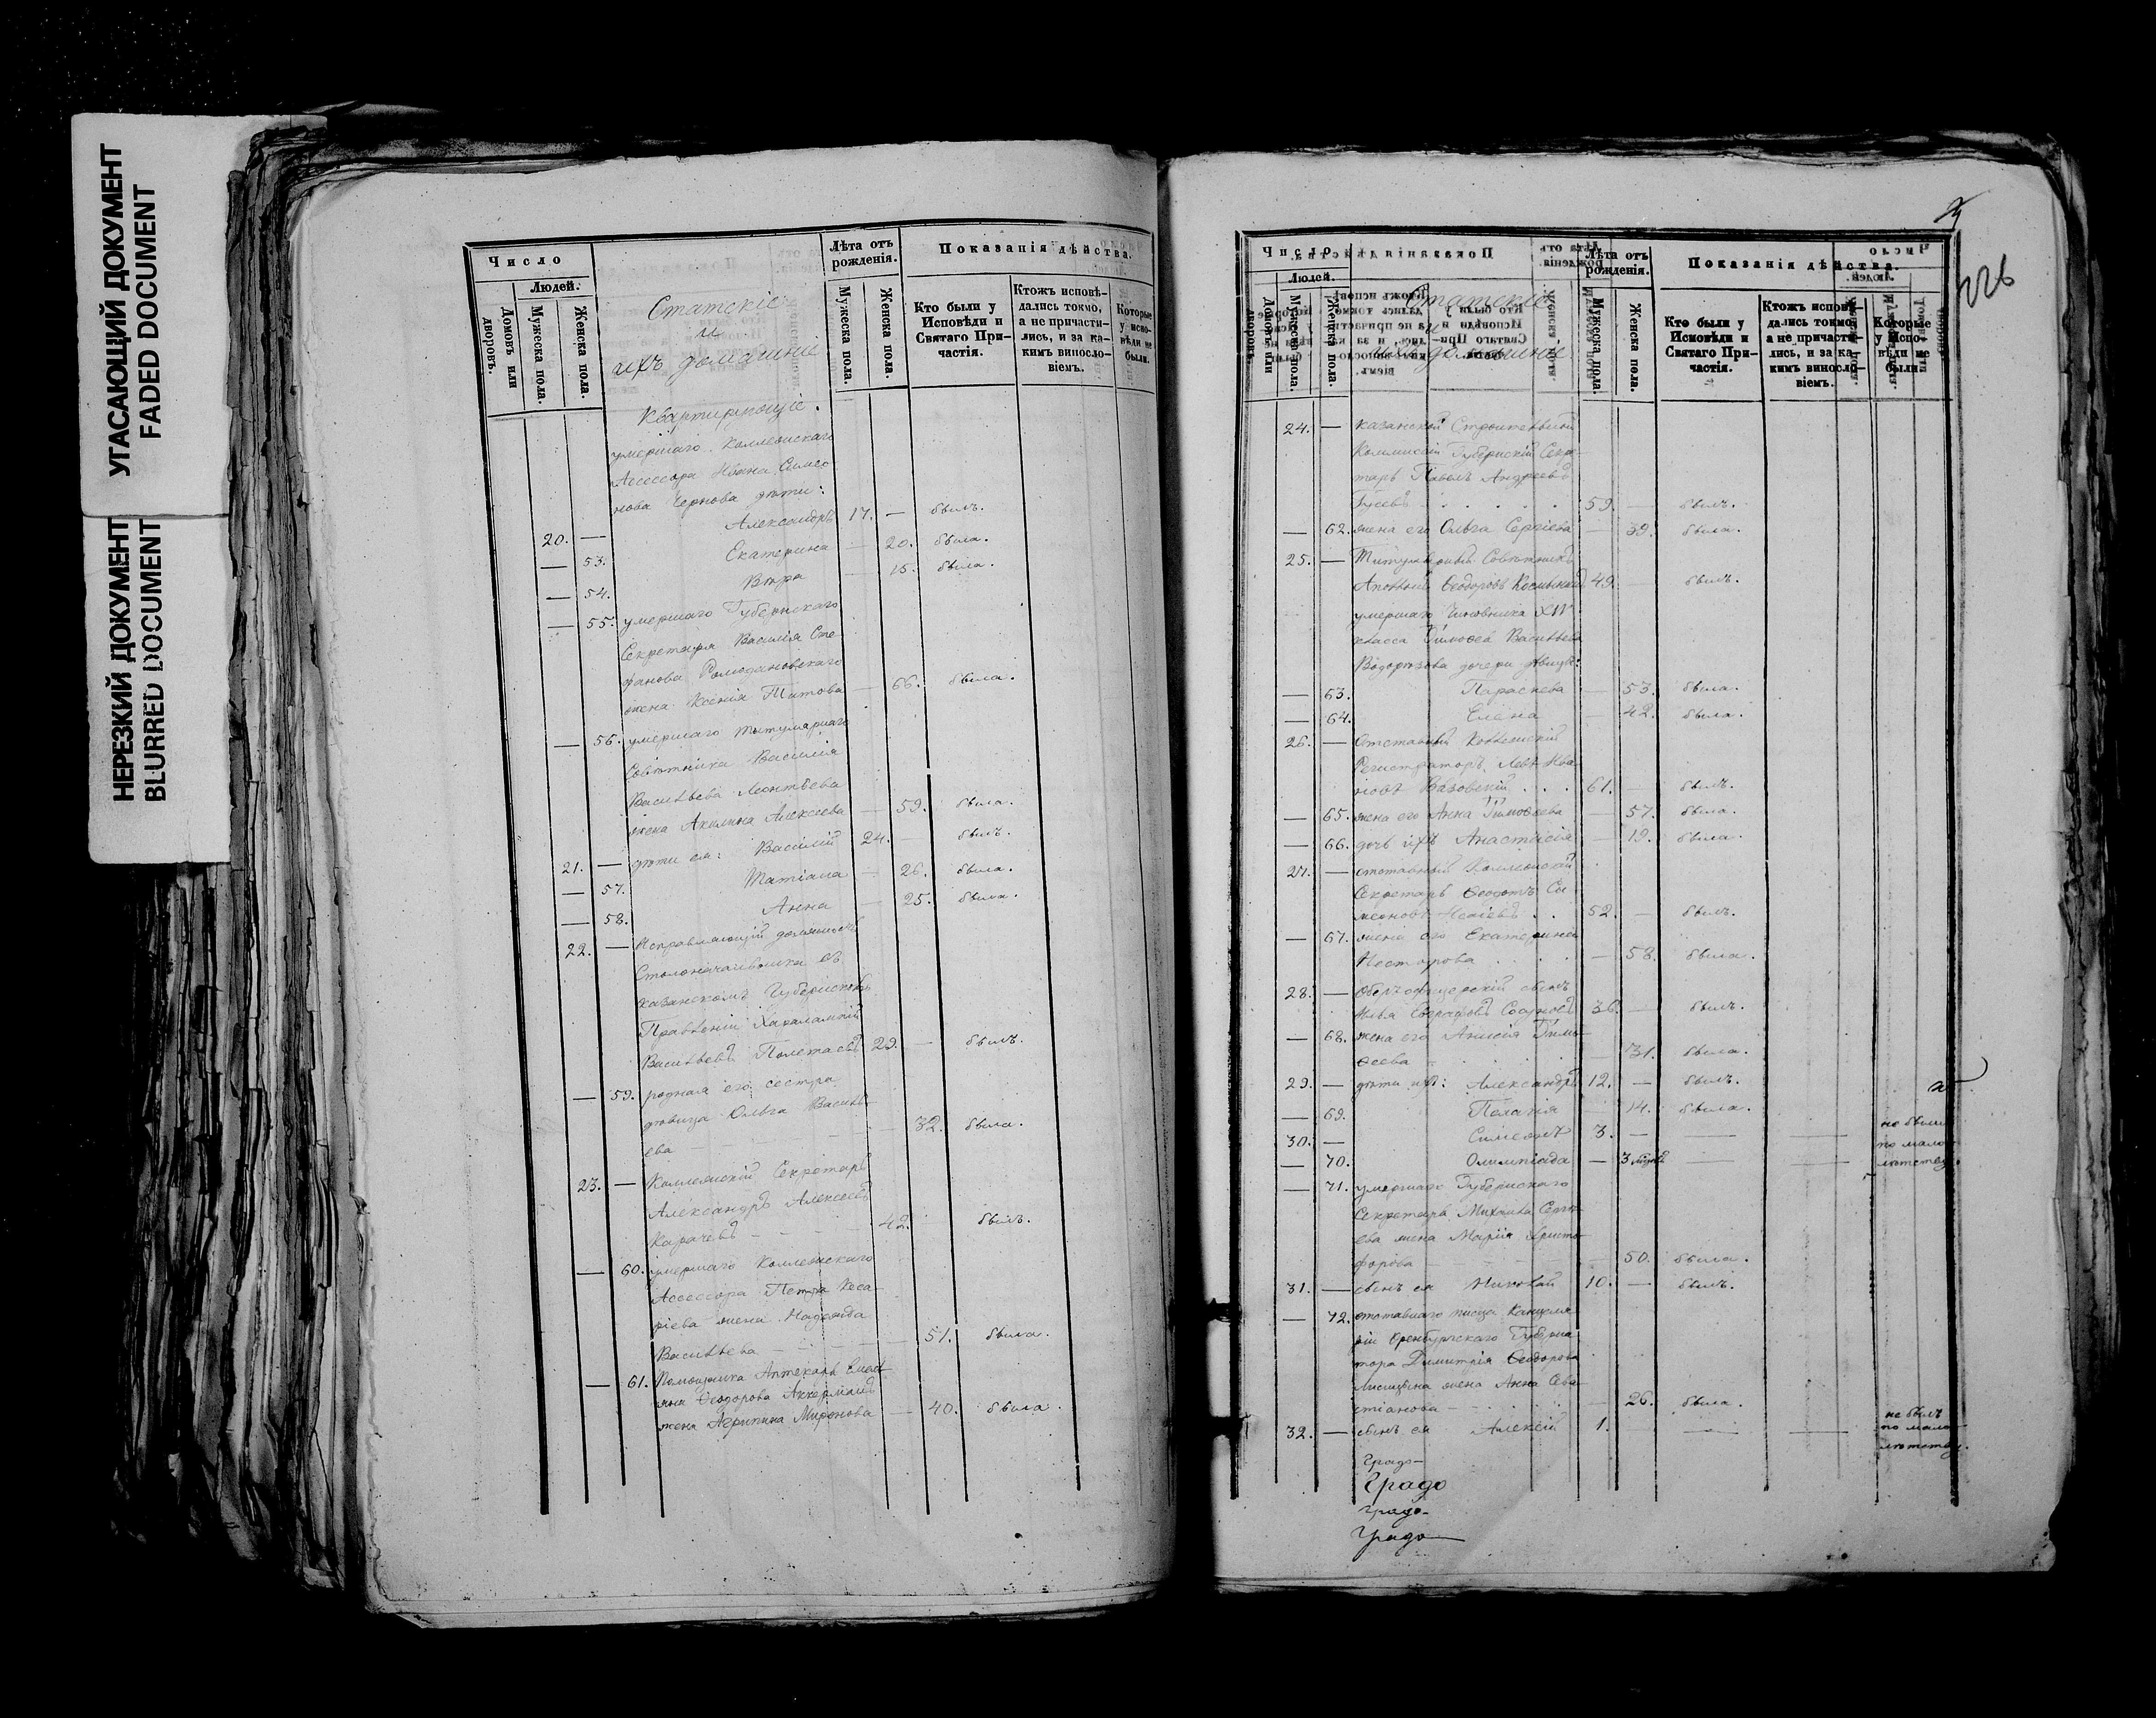 УГАСАЮЩИЙ ДОКУМЕНТ
FADED DOCUMENT
НЕРЕЗКИЙ ДОКУМЕНТ
BLURRED DOCUMENT
Число
Людей.
Домовъ или дворовъ.
Мужеска пола.
Женска пола.
Статскіе
и
ихъ домашніе
Лѣта отъ рожденія.
Мужеска пола.
Женска пола.
Показанія дѣйства.
Кто были у Исповѣди и Святаго Причастія.
Ктожъ исповѣдались токмо, а не причастились, и за какимъ винословіемъ.
Которые у исповѣди не были.
Квартирующіе.
умершаго Коллежскаго
Ассессора Ивана Симео
нова Чернова дѣти:
20. — Александръ 17. — былъ.
— 53. Екатерина — 20. была.
— 54. Вѣра — 15. была.
— 55. умершаго Губернскаго
Секретаря Василія Сте
фанова Ромодановскаго
жена Ксенія Титова — 66. была.
— 56. умершаго Титулярнаго
Совѣтника Василія
Васильева Леонтьева
жена Акилина Алексеева — 59. была.
21. — дѣти ея: Василій 24. — былъ.
— 57. Татіана — 26. была.
— 58. Анна — 25. была.
22. — Исправляющій должность
Столоначальника въ
Казанскомъ Губернскомъ
Правленіи Харалампій
Васильевъ Полетаевъ 29. — былъ.
— 59. родная его сестра
дѣвица Ольга Василь-
ева — 32. была.
23. — Коллежскій Секретарь
Александръ Алексеевъ
Карачевъ 42. былъ.
— 60. умершаго Коллежскаго
Ассессора Петра Кеса-
ріева жена Надежда
Васильева — 51. была.
— 61. Помощника Аптекаря
Ѳеодорова Аккерманъ
жена Агрипина Миронова — 40. была.
226
Число
Людей.
Домовъ или дворовъ.
Мужеска пола.
Женска пола.
Статскіе
и
ихъ домашніе
Лѣта отъ рожденія.
Мужеска пола.
Женска пола.
Показанія дѣйства.
Кто были у Исповѣди и Святаго Причастія.
Ктожъ исповѣдались токмо, а не причастились, и за какимъ винословіемъ.
Которые у исповѣди не были.
24. — Казанской Строительной
Коммисіи Губернскій Секре
тарь Павелъ Андреевъ
Гусевъ 59. — былъ.
— 62. жена его Ольга Сергіева — 39. была.
25. — Титулярный Совѣтникъ
Ѳеодоровъ 49. — былъ.
умершаго Чиновника XIV
класса Тимоѳея Васильева
дочери дѣвицы:
— 63. Параскева — 53. была.
— 64. Елена — 42. была.
26. — Отставный Коллежскій
Регистраторъ Левъ Ива
новъ 61. — былъ.
— 65. жена его Анна Тимоѳеева — 57. была.
— 66. дочь ихъ Анастасія — 19. была.
27. — отставный Коллежскій
Секретарь Ѳеодотъ Си
меоновъ 52. — былъ.
— 67. жена его Екатерина
Нестерова — 58. была.
28. — Оберъофицерскій сынъ
Илья Евграфовъ 36. — былъ.
— 68. жена его Анисія Тимо-
ѳеева — 31. была.
29. — дѣти ихъ: Александръ 12. — былъ.
— 69. Пелагія — 14. была.
30. — Симеонъ 3. — — — не были
— 70. Олимпіада — 3 — — по мало-
лѣтству.
— 71. умершаго Губернскаго
Секретаря Михаила Серги-
ева жена Марія Христо-
форова — 50. была.
31. — сынъ ея Николай 10. — былъ.
— 72. отставнаго писца Канцеля
ріи Оренбургскаго Губерна
тора Димитрія Ѳеодорова
жена Анна Сева-
стіанова — 26. была.
32. — сынъ ея Алексій 1. — — — не былъ
по мало-
лѣтству.
Градо-
Градо
Градо-
Градо